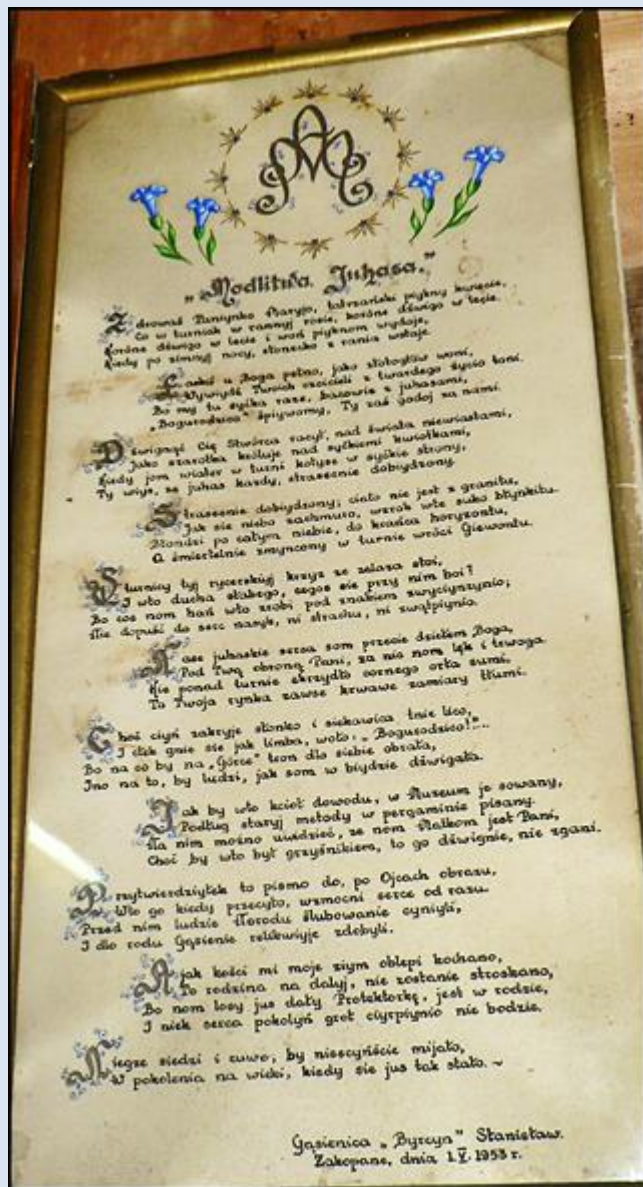 „Modlitwa Juhasa."
Zdrowaś Paniynko Maryjo, tatrzański piykny kwiecie,
Co w turniak w rannyj rosie, koróne dźwigo w lecie.
Koróne dźwigo w lecie i woń piyknom wydaje,
Kiedy po zimnyj nocy, słonecko z rania wstaje.
Łaskiś u Boga pełno, jako złotogłów woni,
Wywiydź Twoich czcicieli z twardego życio toni.
Bo my tu syćka raze, bacowie z juhasami,
„Bogurodzico" śpiywomy, Ty zaś godoj za nami.
Dźwignąć Cię Stwórca racył, nad świata niewiastami,
Jako szarotka króluje nad syćkiemi kwiotkami,
Kiedy jom wiater w turni kołyse w syćkie strony,
Ty wiys, ze juhas kazdy, strasecnie dobiydzony.
Strasecnie dobiydzony; ciało nie jest z granitu,
Jak sie niebo zachmuro, wzrok wte suko błynkitu.
Błondzi po całym niebie, do krańca horyzontu,
A śmiertelnie zmyncony w turnie wróci Giewontu.
W turnicy tyj rycerskiyj krzyz ze zelaza stoi,
I wto ducha słabego, cegos sie przy nim boi?
Bo cos nom hań wto zrobi pod znakiem zwyciynzynio;
Nie dopuści do serc nasyk, ni strachu, ni zwątpiynio.
Nase juhaskie serca som przecie dziełem Boga,
Pod Twą obroną Pani, za nic nom lęk i trwoga.
Kie ponad turnie skrzydło cornego orła sumi,
To Twoja rynka zawse krwawe zamiary tłumi.
Choć ciyń zakryje słonko i siekawica tnie lico,
I cłek gnie sie jak limba, woło: „Bogurodzico!"...
Bo na co by na „Górce" tron dlo siebie obrała,
Ino na to, by ludzi, jak som w biydzie dźwigała.
Jak by wto kcioł dowodu, w Muzeum je sowany,
Podług staryj metody w pergaminie pisany.
Na nim mozno uwidzieć, ze nom Matkom jest Pani,
Choć by wto był grzyśnikiem, to go dźwignie, nie zgani.
Przytwierdziyłek to pismo do, po Ojcach obrazu,
Wto go kiedy przecyto, wzmocni serce od razu.
Przed nim ludzie Narodu ślubowanie cyniyli,
I dlo rodu Gąsienic relikwiyje zdobyli.
A jak kości mi moje ziym oblepi kochano,
To rodzina na dalyj, nie zostanie stroskano,
Bo nom losy jus dały Protektorkę, jest w rodzie,
I niek serca pokolyń grot ciyrpiynio nie bodzie.
Niegze siedzi i cuwo, by niescyńście mijało,
W pokolenia na wieki, kiedy sie jus tak stało. ~
Gąsienica „Byrcyn" Stanisław.
Zakopane, dnia 1.V.1953 r.